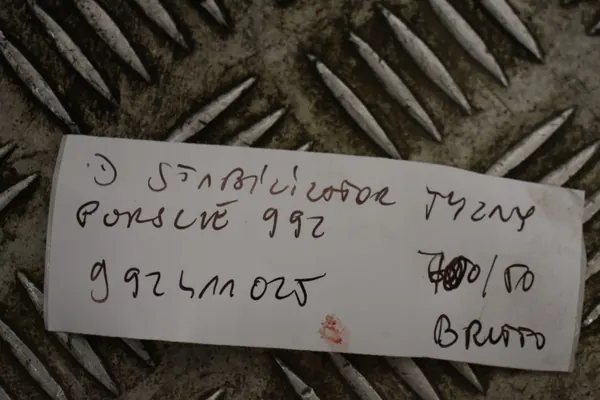 :) STABILIZATOR TYLNY
PORSCHE 992
992411025
/50
BRUTTO